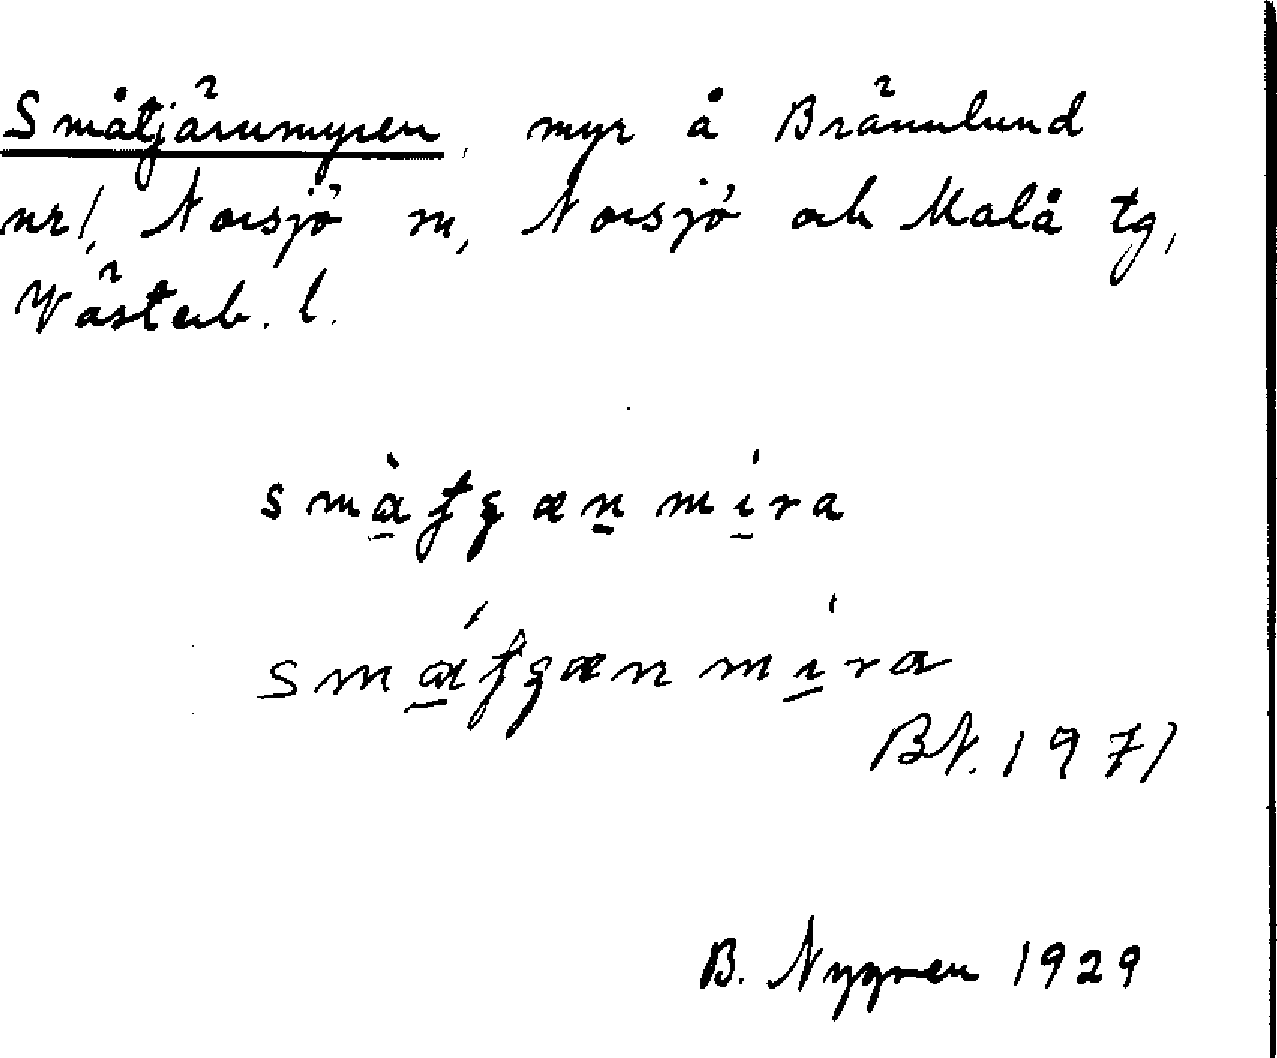 Småtjärnmyren, myr å Brännlund
nr 1, Norsjö sn, Norsjö och Malå tg,
Västerb. l.
BN. 1971
B. Nygren 1929